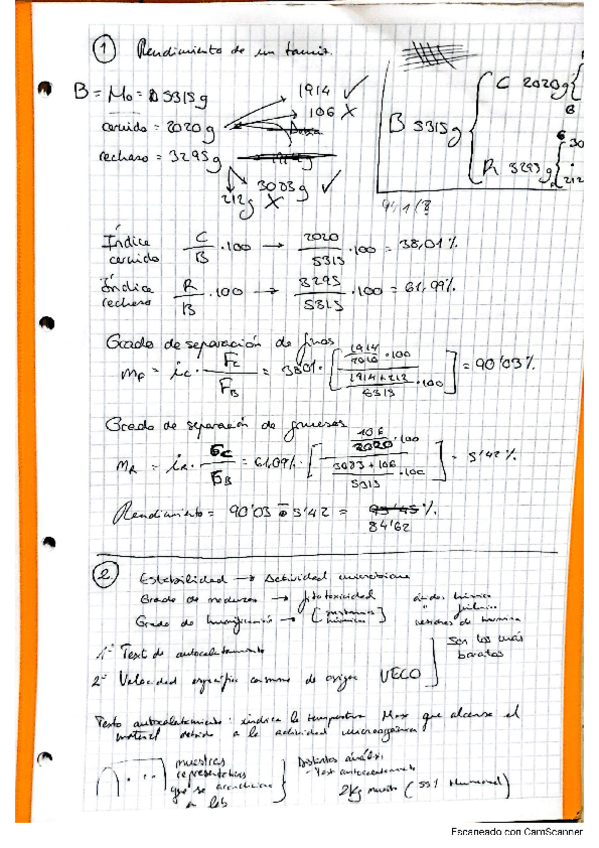 1 Rendimiento de un tamiz.
B = Mo = 5315g
1914 ✓
106 X
cernido = 2020g
rechazo = 3295g
3083g ✓
212g X
B 5315g
C 2020g
R 3295g
212
Índice cernido C/B · 100 → 2020/5315 · 100 = 38,01%
Índice rechazo R/B · 100 → 3295/5315 · 100 = 61,99%
Grado de separación de finos
= ic · Fc/FB = 3801 · [1914/2020 · 100 / 1914+212/5315 · 100] = 90'03%
Grado de separación de gruesos
= · Gc/GB = [106/2020 · 100 / 3083+106/5315 · 100] = 5'42%
Rendimiento = 90'03 - 5'42 = %
84'62
2 Estabilidad → Actividad microbiana
Grado de madurez → fitotoxicidad
Grado de humificación → [sustancias húmicas]
1º Test de autocalentamiento
2º Velocidad específica consumo de oxígeno VECO
Son los más baratos
Testo autocalentamiento: indica la temperatura Max que alcanza el
material debido a la actividad microorgánica
muestras
representativas
que se
en lab
Distintos análisis
- Test autocalentamiento
2Kg (55% Humedad)
Escaneado con CamScanner